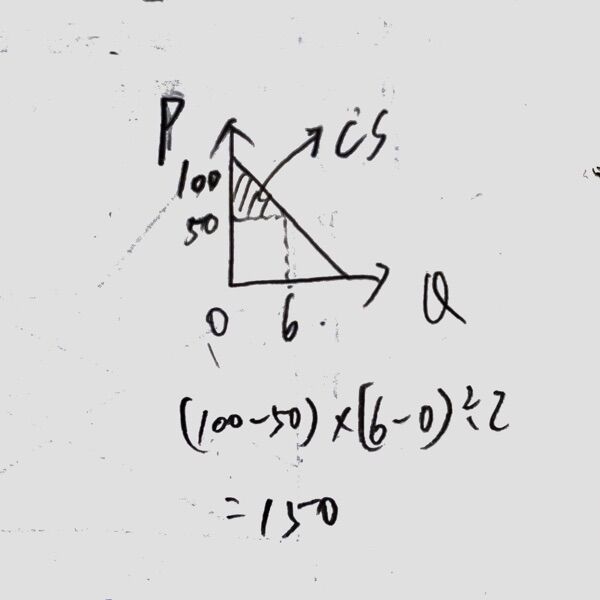 P
CS
100
50
0
6
Q
(100-50)×(6-0)÷2
=150